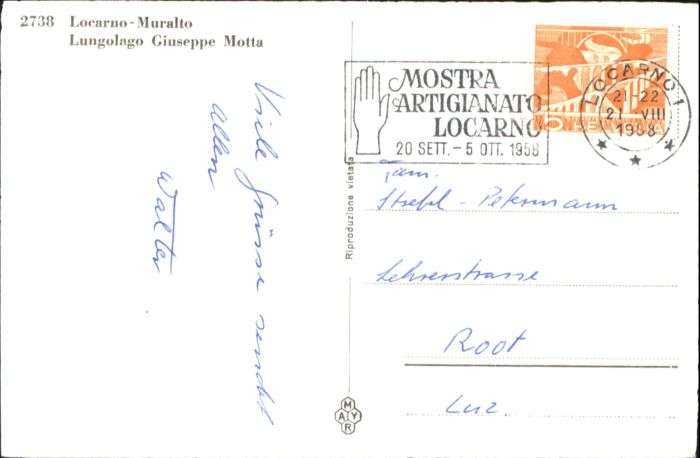 2738 Locarno-Muralto
Lungolago Giuseppe Motta
Viele Grüsse sendet
Allen
Walter
Riproduzione vietata
MAYR
MOSTRA
ARTIGIANATO
LOCARNO
20 SETT. - 5 OTT. 1958
LOCARNO 1
21-22
21 VIII
1958
5
HELVETIA
Fam.
Petermann
Lehrerstrasse
Root
Luz.